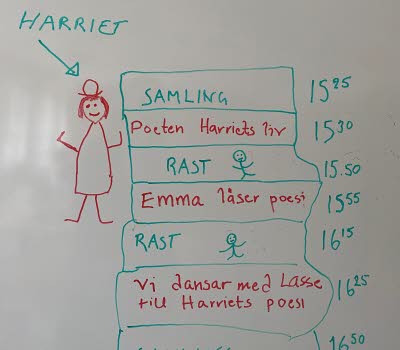 HARRIET
SAMLING 15 25
Poeten Harriets liv 15 30
RAST 15.50
Emma låser poesi 15 55
RAST 16 15
Vi dansar med Lasse 16 25
till Harriets poesi
16 50